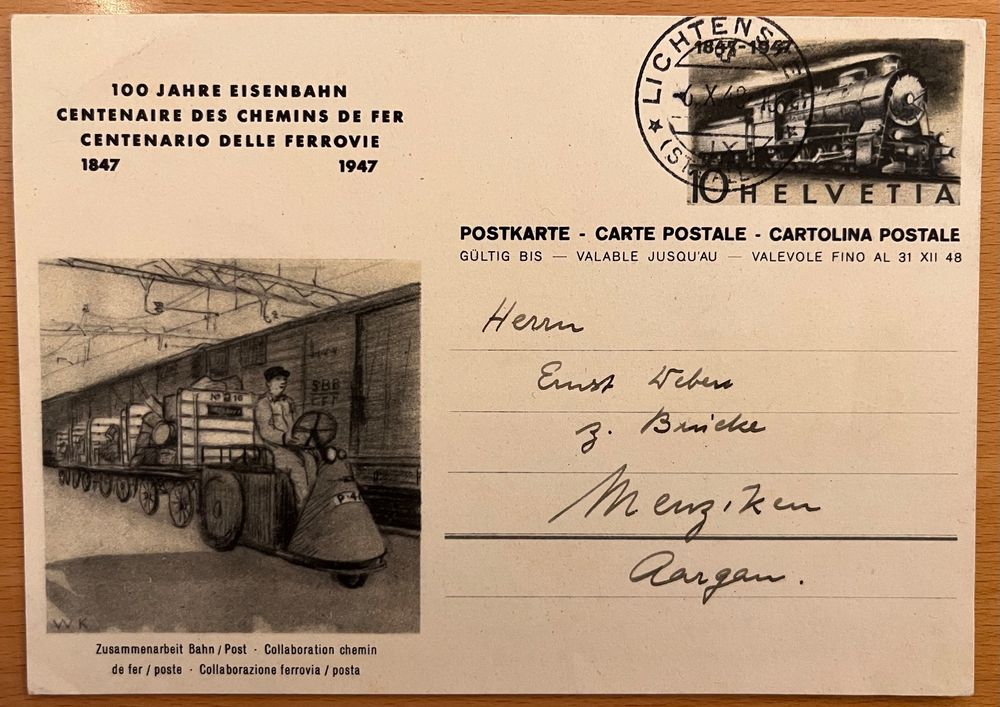 100 JAHRE EISENBAHN
CENTENAIRE DES CHEMINS DE FER
CENTENARIO DELLE FERROVIE
1847 1947
LICHTENSTEIG
1847-1947
10 HELVETIA
POSTKARTE - CARTE POSTALE - CARTOLINA POSTALE
GÜLTIG BIS — VALABLE JUSQU'AU — VALEVOLE FINO AL 31 XII 48
Herrn
Ernst Weber
z. Brücke
Menziken
Aargau.
SBB
CFF
No 10
P 4
WK
Zusammenarbeit Bahn / Post · Collaboration chemin
de fer / poste · Collaborazione ferrovia / posta